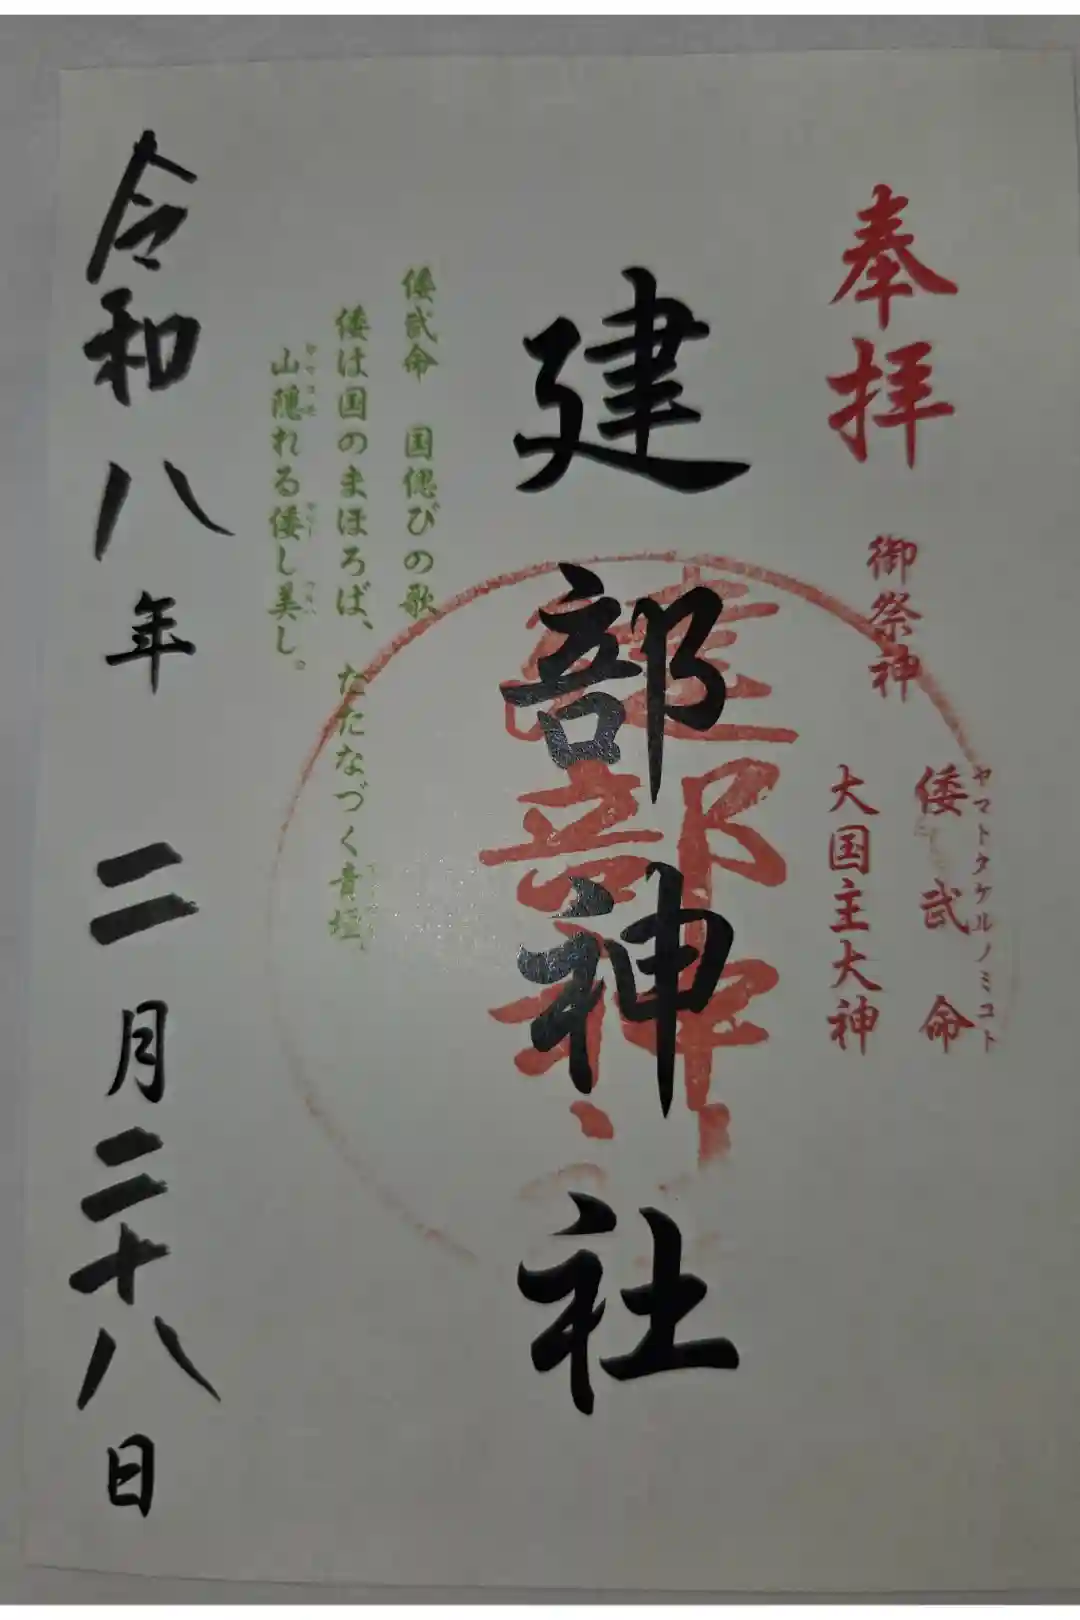 奉拝
御祭神
ヤマトタケルノミコト
倭武命
大国主大神
建部神社
倭武命　国偲びの歌
倭は国のまほろば、たたなづく青垣、
山隠れる倭し美し。
令和八年　二月二十八日